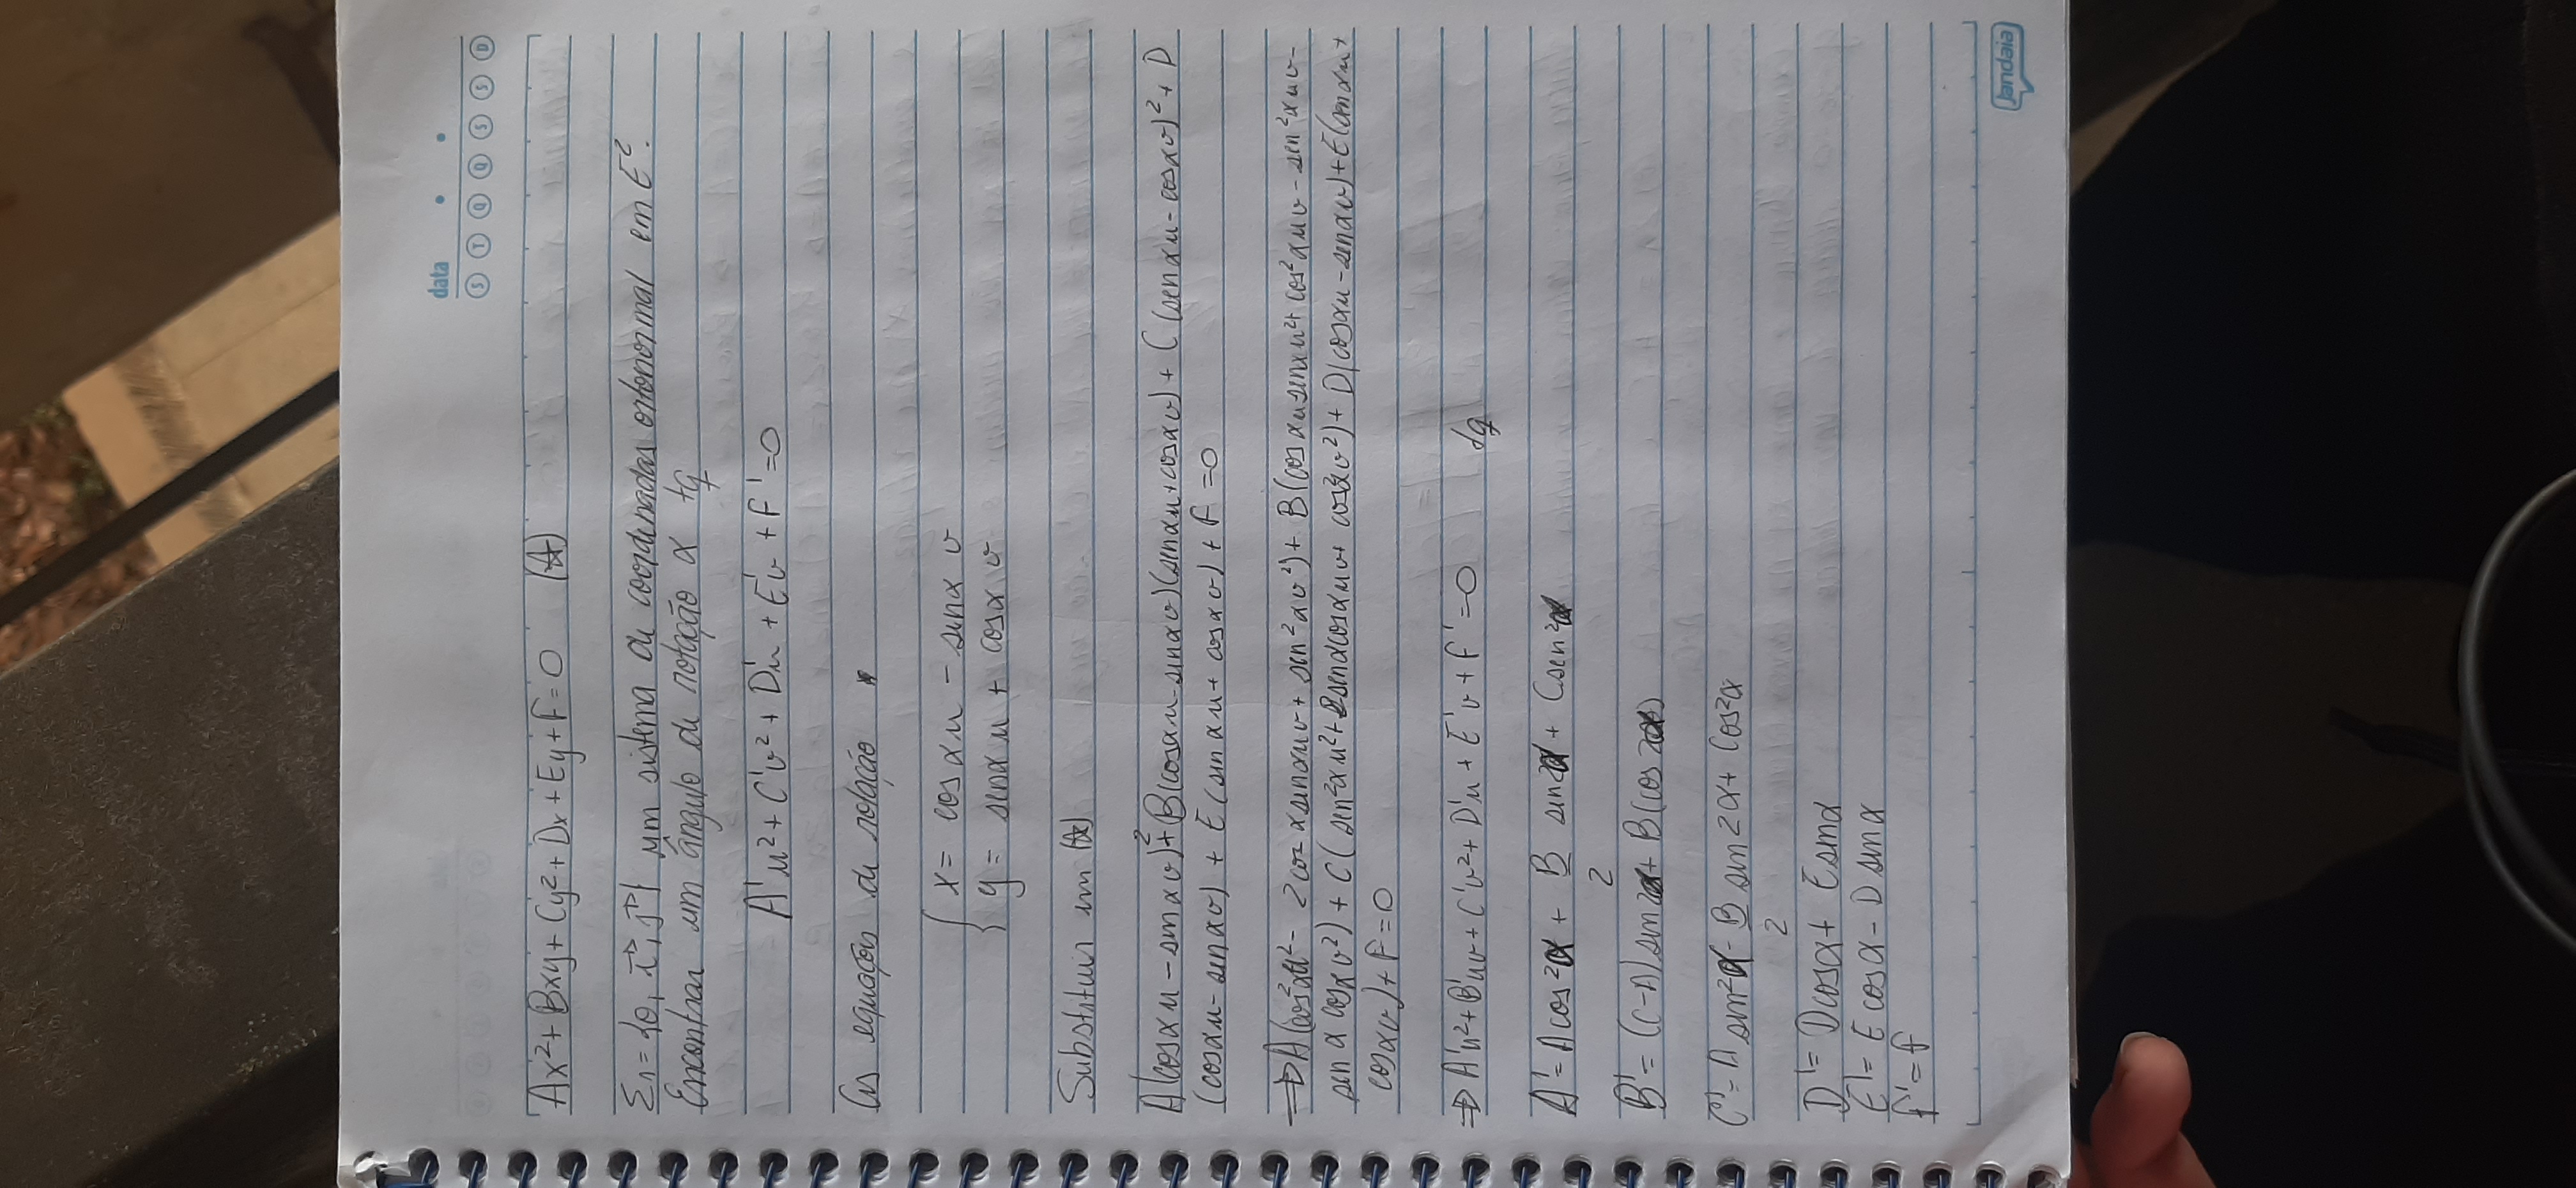 data
S T Q Q S S D
Ax²+ Bxy+ Cy²+ Dx+Ey+F=0 (☆)
Σ₁={0, i⃗, j⃗} um sistema de coordenadas ortonormal em E².
Encontrar um ângulo de rotação α tq
A'u²+ C'v²+ D'u + E'v + F'=0
As equações de rotação
x= cosαu - sinα v
y= senα u + cosα v
Substituir em (☆)
A(cosαu-sinαv)²+B(cosαu-sinαv)(senαu+cosαv)+ C(senαu-cosαv)²+ D
(cosαu- sinαv) + E(sinαu+ cosαv) + F=0
⇒A(cos²αu²- 2cos αsinαuv+ sen²αv²)+ B(cosαusenαu²+ cos²αuv-sen²αuv-
sen α cosαv²)+ C(sen²αu²+2senαcosαuv+ cos²αv²)+ D(cosαu-senαv)+E(senαu+
cosαv)+F=0
⇒ A'u²+B'uv+C'v²+D'u+E'v+F'=0 tq
A'= Acos²α + B/2 sin2α + Csen²α
B'= (C-A)sin2α+ B(cos2α)
C'= A sin²α- B/2 sin2α+ Cos²α
D'= Dcosα+ Esinα
E'= E cosα- D sinα
F'=F
Jandaia